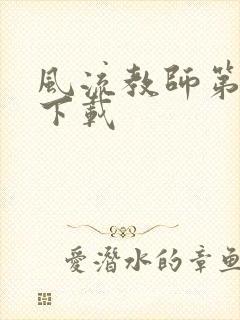 風流教師第
下載
愛潛水的章魚